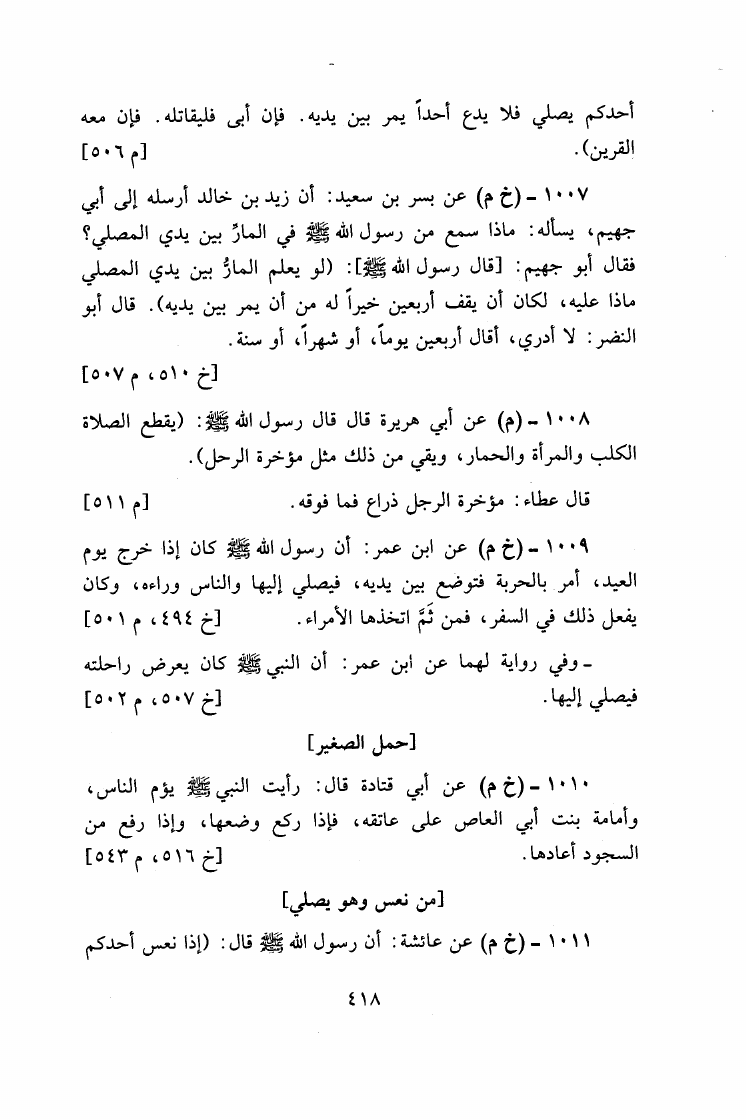 أحدكم يصلي فلا يدع أحداً يمر بين يديه. فإن أبى فليقاتله. فإن معه
القرين). [م ٥٠٦]
١٠٠٧ - (خ م) عن بسر بن سعيد: أن زيد بن خالد أرسله إلى أبي
جهيم، يسأله: ماذا سمع من رسول الله ﷺ في المارِّ بين يدي المصلي؟
فقال أبو جهيم: [قال رسول الله ﷺ]: (لو يعلم المارُّ بين يدي المصلي
ماذا عليه، لكان أن يقف أربعين خيراً له من أن يمر بين يديه). قال أبو
النضر: لا أدري، أقال أربعين يوماً، أو شهراً، أو سنة.
[خ ٥١٠، م ٥٠٧]
١٠٠٨ - (م) عن أبي هريرة قال قال رسول الله ﷺ: (يقطع الصلاة
الكلب والمرأة والحمار، ويقي من ذلك مثل مؤخرة الرحل).
قال عطاء: مؤخرة الرجل ذراع فما فوقه. [م ٥١١]
١٠٠٩ - (خ م) عن ابن عمر: أن رسول الله ﷺ كان إذا خرج يوم
العيد، أمر بالحربة فتوضع بين يديه، فيصلي إليها والناس وراءه، وكان
يفعل ذلك في السفر، فمن ثَمَّ اتخذها الأمراء. [خ ٤٩٤، م ٥٠١]
- وفي رواية لهما عن ابن عمر: أن النبي ﷺ كان يعرض راحلته
فيصلي إليها. [خ ٥٠٧، م ٥٠٢]
[حمل الصغير]
١٠١٠ - (خ م) عن أبي قتادة قال: رأيت النبي ﷺ يؤم الناس،
وأمامة بنت أبي العاص على عاتقه، فإذا ركع وضعها، وإذا رفع من
السجود أعادها. [خ ٥١٦، م ٥٤٣]
[من نعس وهو يصلي]
١٠١١ - (خ م) عن عائشة: أن رسول الله ﷺ قال: (إذا نعس أحدكم
٤١٨